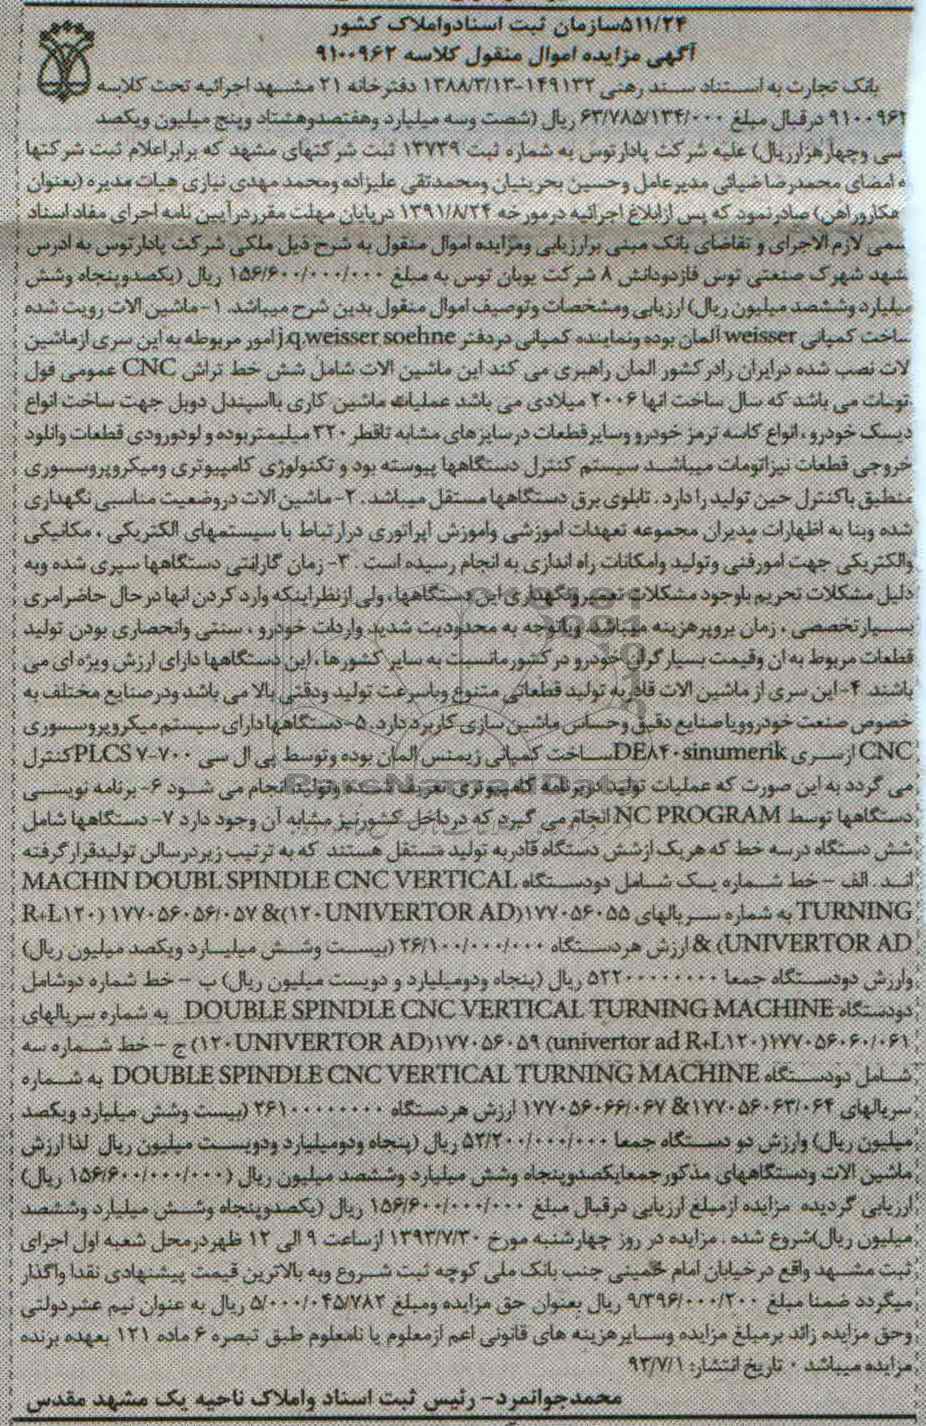 ۵۱۱/۲۴سازمان ثبت اسنادواملاک کشور
آگهی مزایده اموال منقول کلاسه ۹۱۰۰۹۶۲
بانک تجارت به استناد سند رهنی ۱۴۹۱۳۲-۱۳۸۸/۳/۱۳ دفترخانه ۲۱ مشهد اجرائیه تحت کلاسه
۹۱۰۰۹۶۲ درقبال مبلغ ۶۳/۷۸۵/۱۳۴/۰۰۰ ریال (شصت وسه میلیارد وهفتصدوهشتاد وپنج میلیون ویکصد
سی وچهارهزارریال) علیه شرکت پادارتوس به شماره ثبت ۱۳۷۳۹ ثبت شرکتهای مشهد که برابراعلام ثبت شرکتها
ه امضای محمدرضا ضیائی مدیرعامل وحسین بحرینیان ومحمدتقی علیزاده ومحمد مهدی نیازی هیات مدیره (بعنوان
هکاروراهن) صادرنمود که پس ازابلاغ اجرائیه درمورخه ۱۳۹۱/۸/۲۴ درپایان مهلت مقرردرآیین نامه اجرای مفاد اسناد
سمی لازم الاجرای و تقاضای بانک مبنی برارزیابی ومزایده اموال منقول به شرح ذیل ملکی شرکت پادارتوس به ادرس
شهد شهرک صنعتی توس فازدودانش ۸ شرکت پویان توس به مبلغ ۱۵۶/۶۰۰/۰۰۰/۰۰۰ ریال (یکصدوپنجاه وشش
میلیارد وششصد میلیون ریال) ارزیابی ومشخصات وتوصیف اموال منقول بدین شرح میباشد. ۱- ماشین الات رویت شده
ساخت کمپانی weisser آلمان بوده ونماینده کمپانی دردفتر j.q.weisser soehne امور مربوطه به این سری ازماشین
لات نصب شده درایران رادرکشور المان راهبری می کند این ماشین الات شامل شش خط تراش CNC عمومی فول
توتمات می باشد که سال ساخت انها ۲۰۰۶ میلادی می باشد عملیات ماشین کاری بااسپندل دوبل جهت ساخت انواع
دیسک خودرو ، انواع کاسه ترمز خودرو وسایرقطعات درسایزهای مشابه تاقطر ۳۲۰ میلیمتربوده و لودورودی قطعات وانلود
خروجی قطعات نیزاتومات میباشد سیستم کنترل دستگاهها پیوسته بود و تکنولوژی کامپیوتری ومیکروپروسسوری
منطبق باکنترل حین تولید را دارد . تابلوی برق دستگاهها مستقل میباشد . ۲- ماشین الات دروضعیت مناسبی نگهداری
شده وبنا به اظهارات مدیران مجموعه تعهدات اموزشی واموزش اپراتوری درارتباط با سیستمهای الکتریکی ، مکانیکی
والکتریکی جهت امورفنی وتولید وامکانات راه اندازی به انجام رسیده است . ۳- زمان گارانتی دستگاهها سپری شده وبه
دلیل مشکلات تحریم باوجود مشکلات تعمیرونگهداری این دستگاهها ، ولی ازنظراینکه وارد کردن انها درحال حاضرامری
بسیارتخصصی ، زمان بروپرهزینه میباشد وباتوجه به محدودیت شدید واردات خودرو ، سنتی وانحصاری بودن تولید
قطعات مربوط به ان وقیمت بسیارگران خودرو در کشورمانسبت به سایر کشورها ، این دستگاهها دارای ارزش ویژه ای می
باشند. ۴- این سری از ماشین الات قادربه تولید قطعاتی متنوع وباسرعت تولید ودقتی بالا می باشد ودرصنایع مختلف به
خصوص صنعت خودرو وبا صنایع دقیق وحساس ماشین سازی کاربرد دارد. ۵-دستگاهها دارای سیستم میکروپروسسوری
CNC ازسری DE۸۴۰sinumerik ساخت کمپانی زیمنس المان بوده وتوسط پی ال سی PLCS ۷-۷۰۰ کنترل
می گردد به این صورت که عملیات تولید دربرنامه کامپیوتری تعریف شده وتولید انجام می شود ۶- برنامه نویسی
دستگاهها توسط NC PROGRAM انجام می گیرد که درداخل کشورنیز مشابه آن وجود دارد ۷- دستگاهها شامل
شش دستگاه درسه خط که هریک ازشش دستگاه قادربه تولید مستقل هستند که به ترتیب زیردرسالن تولیدقرارگرفته
اند . الف - خط شماره یک شامل دودستگاه MACHIN DOUBL SPINDLE CNC VERTICAL
TURNING به شماره سریالهای ۱۷۷۰۵۶۰۵۵(۱۲۰UNIVERTOR AD) & ۱۷۷۰۵۶۰۵۶/۰۵۷ (R+L۱۲۰
UNIVERTOR AD) & ارزش هردستگاه ۲۶/۱۰۰/۰۰۰/۰۰۰ (بیست وشش میلیارد ویکصد میلیون ریال)
وارزش دودستگاه جمعا ۵۲۲۰۰۰۰۰۰۰۰ ریال (پنجاه ودومیلیارد و دویست میلیون ریال) ب - خط شماره دوشامل
دودستگاه DOUBLE SPINDLE CNC VERTICAL TURNING MACHINE به شماره سریالهای
۱۷۷۰۵۶۰۶۰/۰۶۱(univertor ad R+L۱۲۰) ۱۷۷۰۵۶۰۵۹(۱۲۰UNIVERTOR AD) ج - خط شماره سه
شامل دودستگاه DOUBLE SPINDLE CNC VERTICAL TURNING MACHINE به شماره
سریالهای ۱۷۷۰۵۶۰۶۳/۰۶۴ & ۱۷۷۰۵۶۰۶۶/۰۶۷ ارزش هردستگاه ۲۶۱۰۰۰۰۰۰۰۰ (بیست وشش میلیارد ویکصد
میلیون ریال) وارزش دو دستگاه جمعا ۵۲/۲۰۰/۰۰۰/۰۰۰ ریال (پنجاه ودومیلیارد ودویست میلیون ریال لذا ارزش
ماشین الات ودستگاههای مذکورجمعایکصدوپنجاه وشش میلیارد وششصد میلیون ریال (۱۵۶/۶۰۰/۰۰۰/۰۰۰ ریال)
ارزیابی گردیده مزایده ازمبلغ ارزیابی درقبال مبلغ ۱۵۶/۶۰۰/۰۰۰/۰۰۰ ریال (یکصدوپنجاه وشش میلیارد وششصد
میلیون ریال)شروع شده . مزایده در روز چهارشنبه مورخ ۱۳۹۳/۷/۳۰ ازساعت ۹ الی ۱۲ ظهردرمحل شعبه اول اجرای
ثبت مشهد واقع درخیابان امام خمینی جنب بانک ملی کوچه ثبت شروع وبه بالاترین قیمت پیشنهادی نقدا واگذار
میگردد ضمنا مبلغ ۹/۳۹۶/۰۰۰/۲۰۰ ریال بعنوان حق مزایده ومبلغ ۵/۰۰۰/۰۴۵/۷۸۲ ریال به عنوان نیم عشردولتی
وحق مزایده زائد برمبلغ مزایده وسایرهزینه های قانونی اعم ازمعلوم یا نامعلوم طبق تبصره ۶ ماده ۱۲۱ بعهده برنده
مزایده میباشد ۰ تاریخ انتشار: ۹۳/۷/۱
محمدجوانمرد- رئیس ثبت اسناد واملاک ناحیه یک مشهد مقدس
ParsNamadData